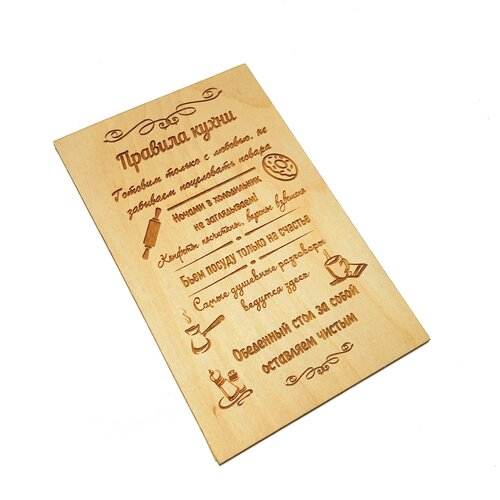 Правила кухни
Готовим только с любовью, не
забываем поцеловать повара
Ночами в холодильник
не заглядываем!
Конфеты посчитаны, вкусы взвешены
Бьем посуду только на счастье
Самые душевные разговоры
ведутся здесь
Обеденный стол за собой
оставляем чистым